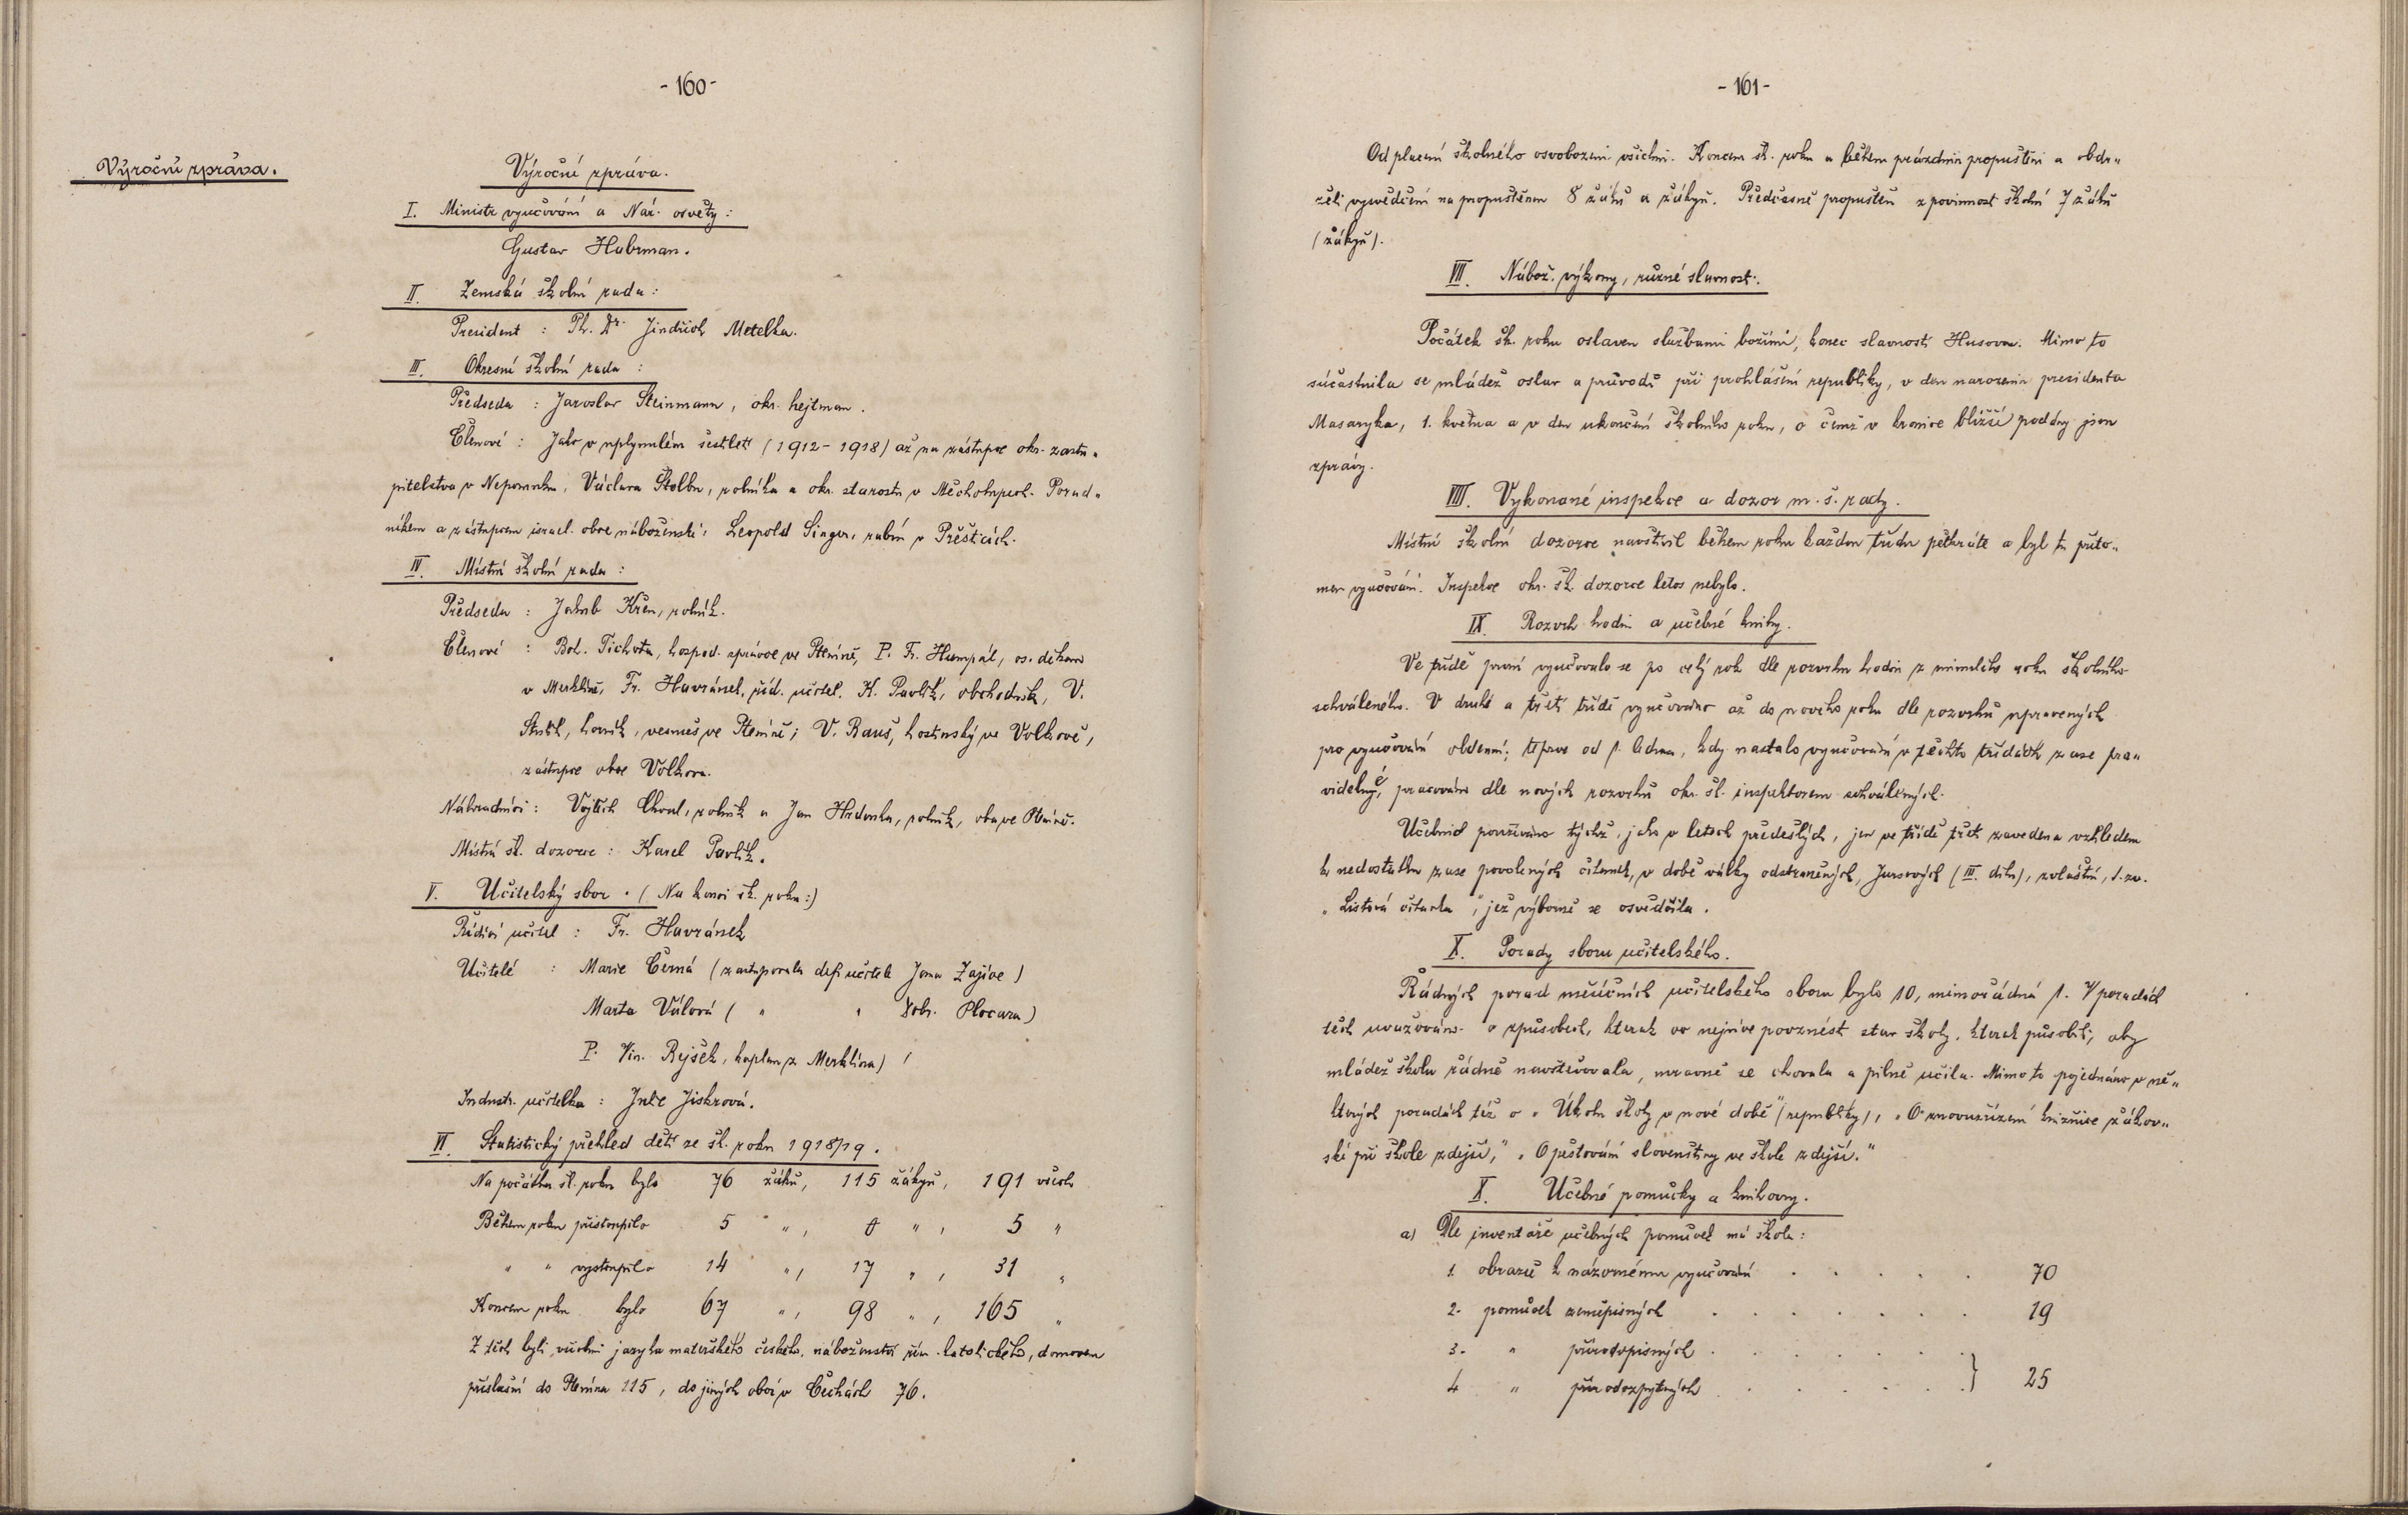 - 160 -
Výroční zpráva.
Výroční zpráva.
I. Ministr vyučování a Nár. osvěty :
Gustav Habrman.
II. Zemská školní rada :
President : Ph. Dr. Jindřich Metelka.
III. Okresní školní rada :
Předseda : Jaroslav Steinmann, okr. hejtman.
Členové : Jako v uplynulém šestiletí (1912 - 1918) až na zástupce okr. zastu„
pitelstva v Nepomuku, Václava Štolbu, rolníka a okr. starostu v Měcholupech. Porad„
níkem a zástupcem israel. obce náboženské: Leopold Singer, rabín v Přešticích.
IV. Místní školní rada :
Předseda : Jakub Křen, rolník.
Členové : Boh. Tichota, hospod. správce ve Pteníně, P. Fr. Humpál, os. děkan
v Merklíně, Fr. Havránek, říd. učitel, K. Pavlík, obchodník, V.
horník, vesměs ve Pteníně; V. Bauš, hostinský ve Volkově,
zástupce obce Volkova.
Náhradníci : Vojtěch Choul, rolník a Jan Hrdonka, rolník, oba ve Pteníně.
Místní šk. dozorce : Karel Pavlík.
V. Učitelský sbor . (Na konci šk. roku :)
Řídící učitel : Fr. Havránek
Učitelé : Marie Černá (zastupovala def. učitele Jana Zajíce)
Marta Válová ( „ „ Dobr. Plocara)
P. Vin. Rejšek, kaplan z Merklína)
Industr. učitelka : Julie Jiskrová.
VI. Statistický přehled dětí ze šk. roku 1918/19.
Na počátku šk. roku bylo 76 žáků, 115 žákyň, 191 všech
Během roku přistoupilo 5 „ , 0 „ , 5 „
„ „ vystoupilo 14 „ , 17 „ , 31 „
Koncem roku bylo 67 „ , 98 „ , 165 „
Z těch byli všichni jazyka mateřského českého, náboženství řím. katolického, domovem
příslušní do Ptenína 115, do jiných obcí v Čechách 76.
- 161 -
Od placení školného osvobozeni všichni. Koncem šk. roku a během prázdnin propuštěni a obdr„
želi vysvědčení na propuštěnou 8 žáků a žákyň. Předčasně propuštěn z povinnosti školní 7 žáků
(žákyň).
VII. Nábož. výkony, různé slavnosti.
Počátek šk. roku oslaven službami božími, konec slavností Husovou. Mimo to
súčastnila se mládež oslav a průvodů při prohlášení republiky, v den narozenin presidenta
Masaryka, 1. května a v den ukončení školního roku, o čemž v kronice bližší podány jsou
zprávy.
VIII. Vykonané inspekce a dozor m. š. rady.
Místní školní dozorce navštívil během roku každou třídu pětkráte a byl tu příto„
men vyučování. Inspekce okr. šk. dozorce letos nebylo.
IX. Rozvrh hodin a učebné knihy.
Ve třídě první vyučovalo se po celý rok dle rozvrhu hodin z minulého roku školního
schváleného. V druhé a třetí třídě vyučováno až do nového roku dle rozvrhů upravených
pro vyučování obdenní; teprve od 1. ledna, kdy nastalo vyučování v těchto třídách zase pra„
videlné, pracováno dle nových rozvrhů okr. šk. inspektorem schválených.
Učebnic používáno týchž, jako v letech předešlých, jen ve třídě třetí zavedena vzhledem
k nedostatku zase povolených čítanek, v době války odstraněných, Jursových (III. dílu), zvláštní, t. zv.
„ Listová čítanka “, jež výborně se osvědčila.
X. Porady sboru učitelského.
Řádných porad měsíčních učitelského sboru bylo 10, mimořádná 1. V poradách
těch uvažováno o způsobech, kterak co nejvíce povznést stav školy, kterak působiti, aby
mládež školu řádně navštěvovala, mravně se chovala a pilně učila. Mimo to pojednáno v ně„
kterých poradách též o „ Úkolu školy v nové době “ (republiky), „ O znovuzřízení knižnice žákov„
ské při škole zdejší,“ „ O pěstování slovenštiny ve škole zdejší.“
X. Učebné pomůcky a knihovny.
a) Dle inventáře učebných pomůcek má škola :
1. obrazů k názornému vyučování . . . . . 70
2. pomůcek zeměpisných . . . . . . . 19
3. „ přírodopisných . . . . . . . }
4 „ přírodozpytných . . . . . . } 25